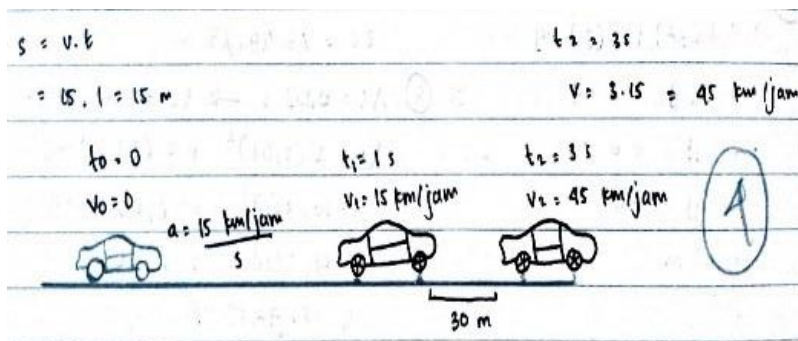 s = v.t
t2 = 3s
= 15 . 1 = 15 m
v = 3.15 = 45 km/jam
t0 = 0
t1 = 1 s
t2 = 3 s
v0 = 0
v1 = 15 km/jam
v2 = 45 km/jam
a = 15 km/jam
s
30 m